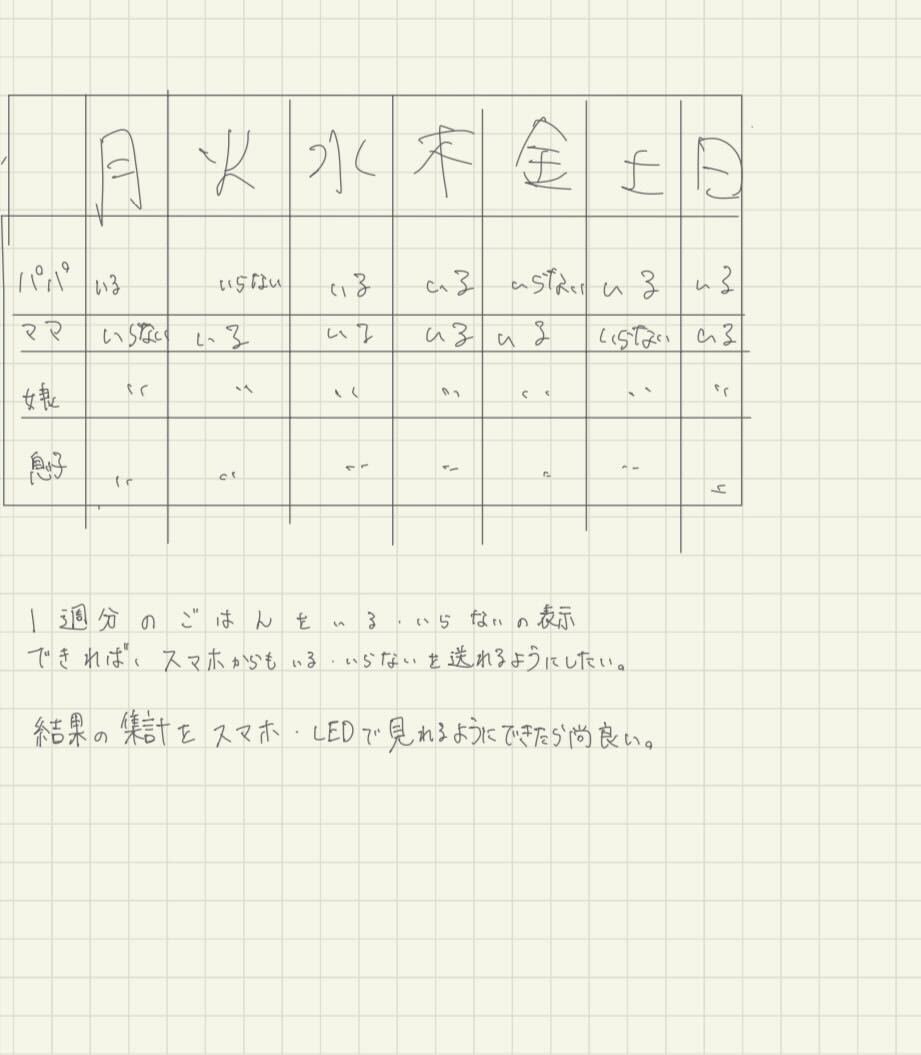 月 火 水 木 金 土 日
パパ いる いらない いる いる いらない いる いる
ママ いらない いる いる いる いる いらない いる
娘 〃 〃 〃 〃 〃 〃 〃
息子 〃 〃 〃 〃 〃 〃 〃
1週分のごはんをいる・いらないの表示
できれば、スマホからもいる・いらないを送れるようにしたい。
結果の集計をスマホ・LEDで見れるようにできたら尚良い。